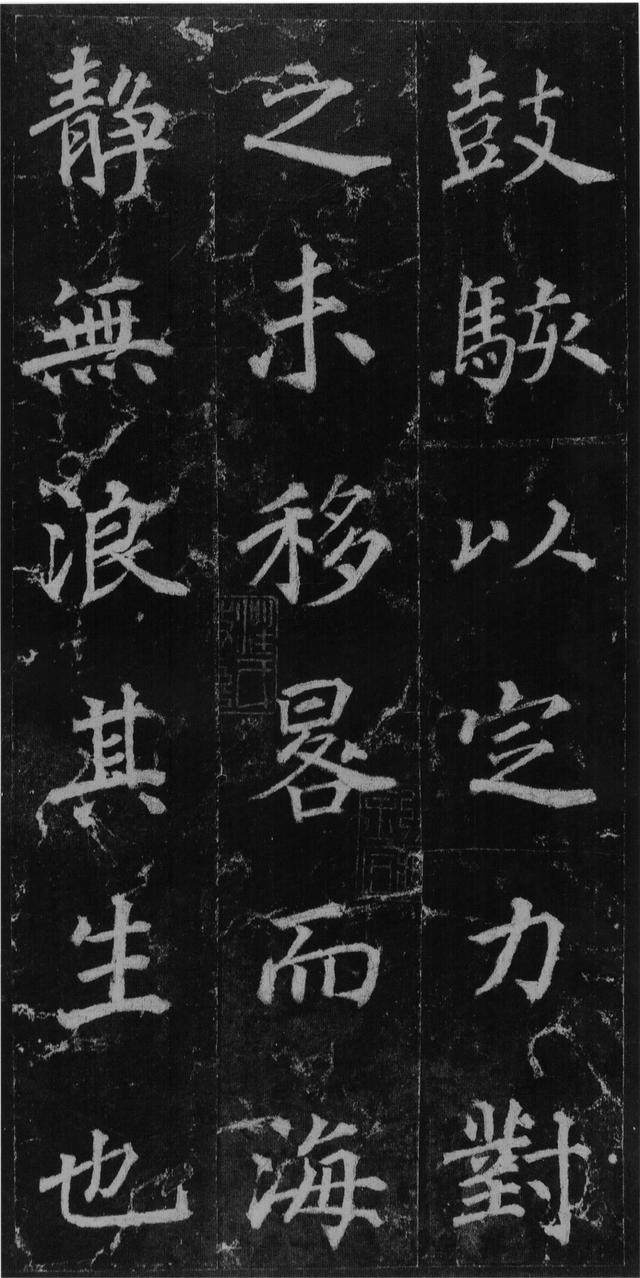 鼓駭以定力對
之未移晷而海
静無浪其生也